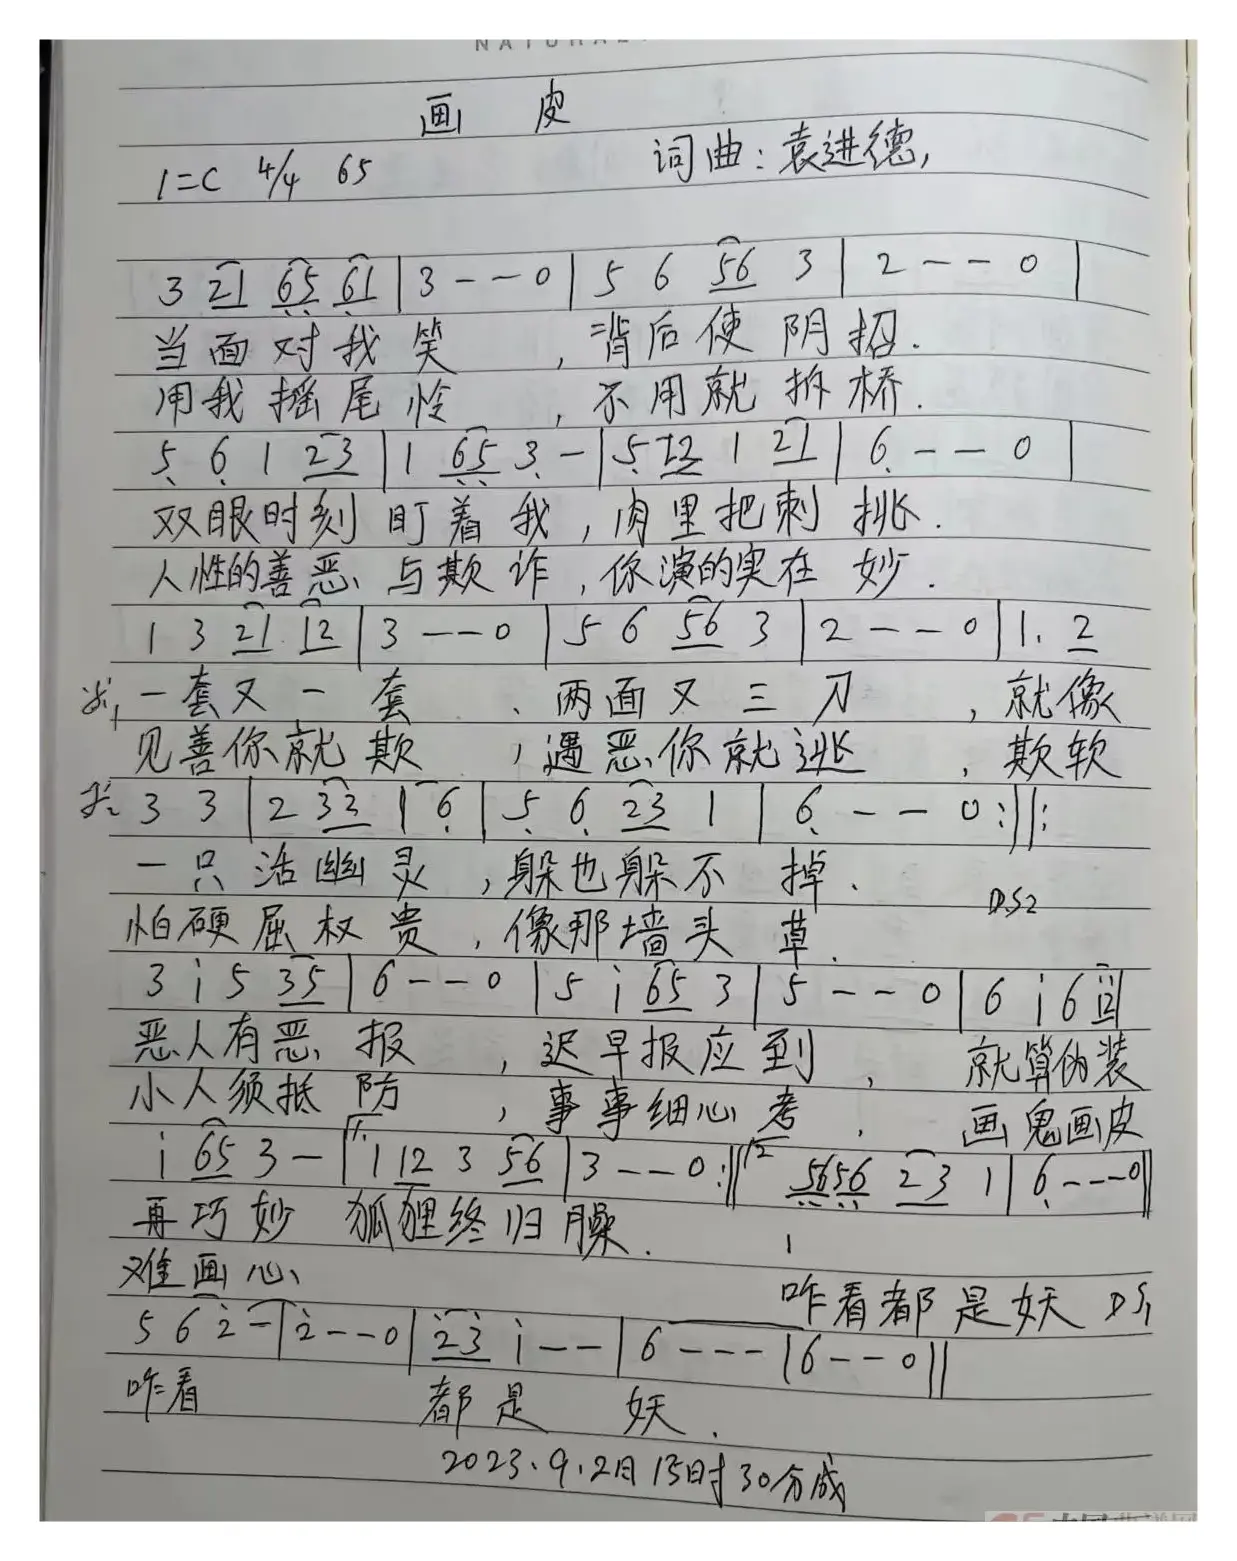 NATURAL
画 皮
词曲：袁进德,
1=C 4/4 65
3 21 65 61 | 3 - - 0 | 5 6 56 3 | 2 - - 0 |
当面对我笑 ，背后使阴招.
用我摇尾怜 ，不用就拆桥.
5 6 1 23 | 1 65 3 - | 5 12 1 21 | 6 - - 0 |
双眼时刻盯着我，肉里把刺挑.
人性的善恶与欺诈，你演的实在妙.
1 3 21 12 | 3 - - 0 | 5 6 56 3 | 2 - - 0 | 1. 2
一套又一套 、两面又三刀 ，就像
见善你就欺 ，遇恶你就逃 ，欺软
3 3 | 2 33 1 6 | 5 6 23 1 | 6 - - 0 :||:
一只活幽灵，躲也躲不掉.
D.S2
怕硬屈权贵，像那墙头草.
3 i 5 35 | 6 - - 0 | 5 i 65 3 | 5 - - 0 | 6 i 6 |
恶人有恶报 ，迟早报应到 ，就算伪装
小人须抵防 ，事事细心考 ，画鬼画皮
i 65 3 - | 1. 1 12 3 56 | 3 - - 0 :|| 2 5656 23 1 | 6 - - - 0 ||
再巧妙 狐狸终归臊.
难画心 咋看都是妖 DS1
5 6 2 - | 2 - - 0 | 23 i - - | 6 - - - | 6 - - 0 ||
咋看 都是 妖.
2023.9.2日15时30分成